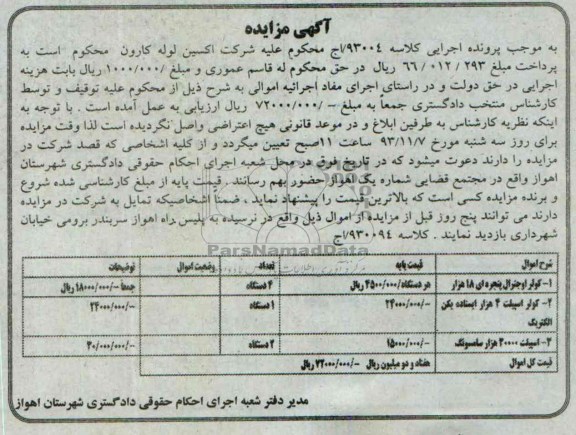 آگهی مزایده
به موجب پرونده اجرایی کلاسه ۹۳۰۰۴/اج محکوم علیه شرکت اکسین لوله کارون محکوم است به
پرداخت مبلغ ۲۹۳ / ۰۱۲ / ۶۶ ریال در حق محکوم له قاسم عموری و مبلغ ۱۰۰۰/۰۰۰/ ریال بابت هزینه
اجرایی در حق دولت و در راستای اجرای مفاد اجرائیه اموالی به شرح ذیل از محکوم علیه توقیف و توسط
کارشناس منتخب دادگستری جمعا به مبلغ -/۷۲۰۰۰/۰۰۰ ریال ارزیابی به عمل آمده است . با توجه به
اینکه نظریه کارشناس به طرفین ابلاغ و در موعد قانونی هیچ اعتراضی واصل نگردیده است لذا وقت مزایده
برای روز سه شنبه مورخ ۹۳/۱۱/۷ ساعت ۱۱صبح تعیین میگردد و از کلیه اشخاصی که قصد شرکت در
مزایده را دارند دعوت میشود که در تاریخ فوق در محل شعبه اجرای احکام حقوقی دادگستری شهرستان
اهواز واقع در مجتمع قضایی شماره یک اهواز حضور بهم رسانند . قیمت پایه از مبلغ کارشناسی شده شروع
و برنده مزایده کسی است که بالاترین قیمت را پیشنهاد نماید . ضمنا اشخاصیکه تمایل به شرکت در مزایده
دارند می توانند پنج روز قبل از مزایده از اموال ذیل واقع در نرسیده به پلیس راه اهواز سربندر برومی خیابان
شهرداری بازدید نمایند . کلاسه ۹۳۰۰۹۴/اج
ParsNamadData
شرح اموال قیمت پایه تعداد وضعیت اموال توضیحات
۱- کولر اوجنرال پنجره ای ۱۸ هزار در دستگاه/۴۵۰۰/۰۰۰ ریال ۴ دستگاه جمعا -/۱۸۰۰۰/۰۰۰ ریال
۲- کولر اسپلت ۴ هزار ایستاده یکن الکتریک -/۲۴۰۰۰/۰۰۰ ۱ دستگاه -/۲۴۰۰۰/۰۰۰
۳- اسپلت ۳۰۰۰۰ هزار سامسونگ -/۱۵۰۰۰/۰۰۰ ۲ دستگاه -/۳۰/۰۰۰/۰۰۰
قیمت کل اموال هفتاد و دو میلیون ریال -/۷۲۰۰۰/۰۰۰ ریال
مدیر دفتر شعبه اجرای احکام حقوقی دادگستری شهرستان اهواز